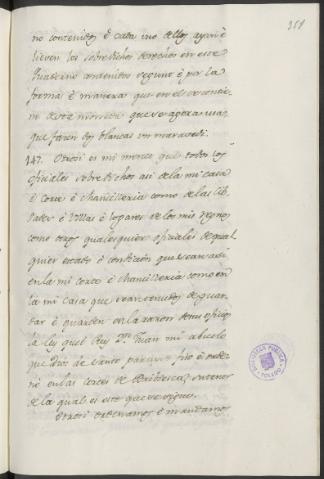 351
no contenidos é cada uno dellos ayan é
lieven los sobredichos derechos en este
Quaderno contenidos segunt é por la
forma é manera que en el se contie
ne desta moneda que se agora usa,
que facen dos blancas un maravedi.
147. Otrosi es mi merce que todos los
oficiales sobredichos asi de la mi casa
é Corte é Chancilleria como de las Cib
dades é Villas é logares de los mis regnos,
como otros qualesquier oficiales de qual
quier estado é condicion que sean asi
en la mi corte é Chancilleria como en
la mi Casa que sean tenudos de guar
dar é guarden en la razon de sus oficios
la ley quel Rey Dn. Juan mi abuelo
que Dios dé Santo parayso fizo é orde
nó en las Cortes de Bribiesca, su tenor
de la qual es este que se sigue.
Otrosi ordenamos é mandamos
BIBLIOTECA PUBLICA
TOLEDO